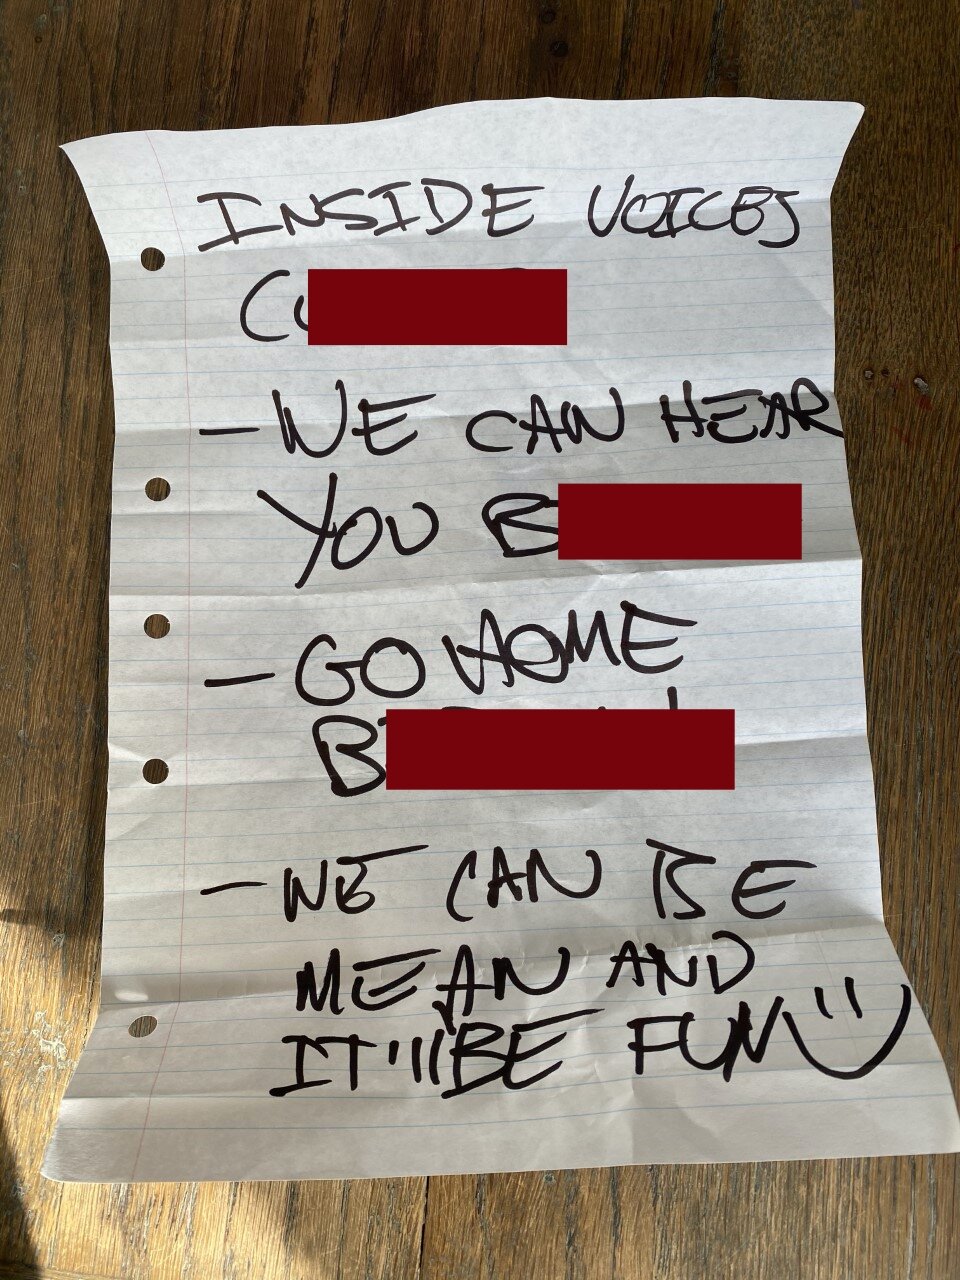 INSIDE VOICES
- WE CAN HEAR
YOU B
- GO HOME
B
- WE CAN BE
MEAN AND
IT'll BE FUN